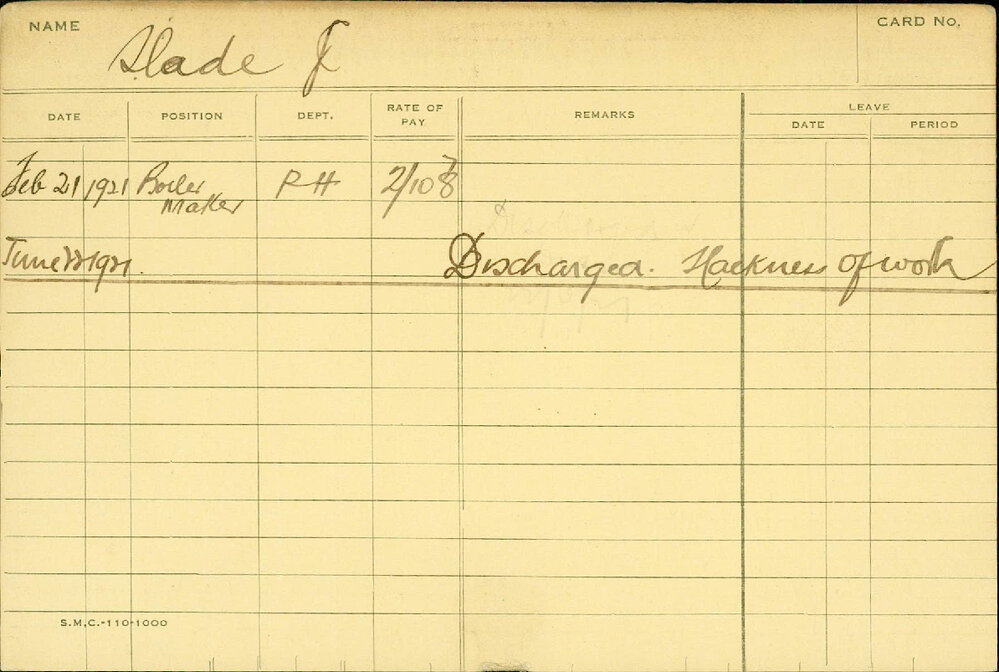 NAME
CARD No.
Slade J
DATE POSITION DEPT. RATE OF PAY REMARKS LEAVE
DATE PERIOD
Feb 21 1921 Boiler Maker PH 2/10
June 1921. Discharged. Slackness of work
S.M.C.-110-1000